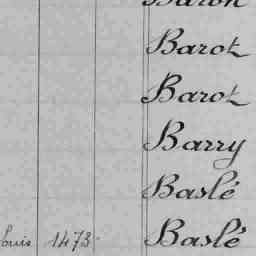 Baron
Barot
Barot
Barry
Baslé
Louis 1473 Baslé